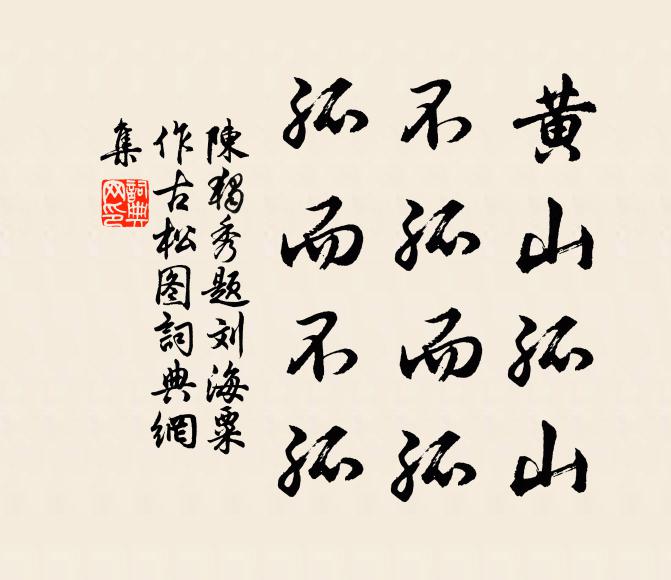 黄山孤山
不孤而孤
孤而不孤
陳獨秀題刘海粟
作古松图詞典網
集
詞典
网印